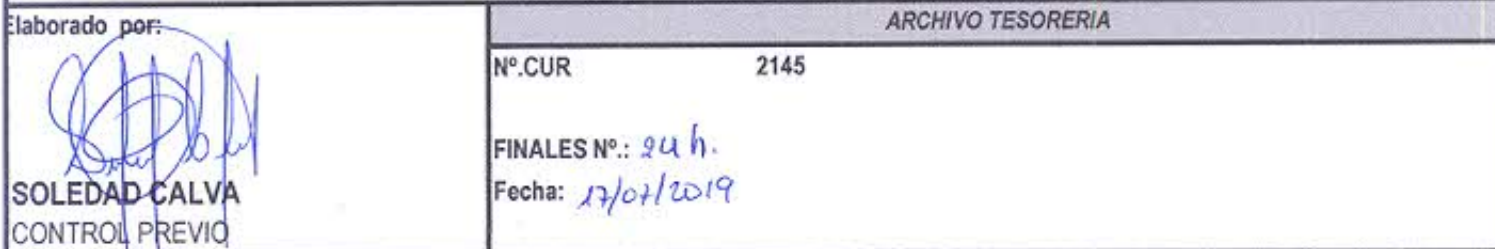 Elaborado por:
SOLEDAD CALVA
CONTROL PREVIO
ARCHIVO TESORERIA
Nº.CUR 2145
FINALES Nº.: 24 h.
Fecha: 17/07/2019